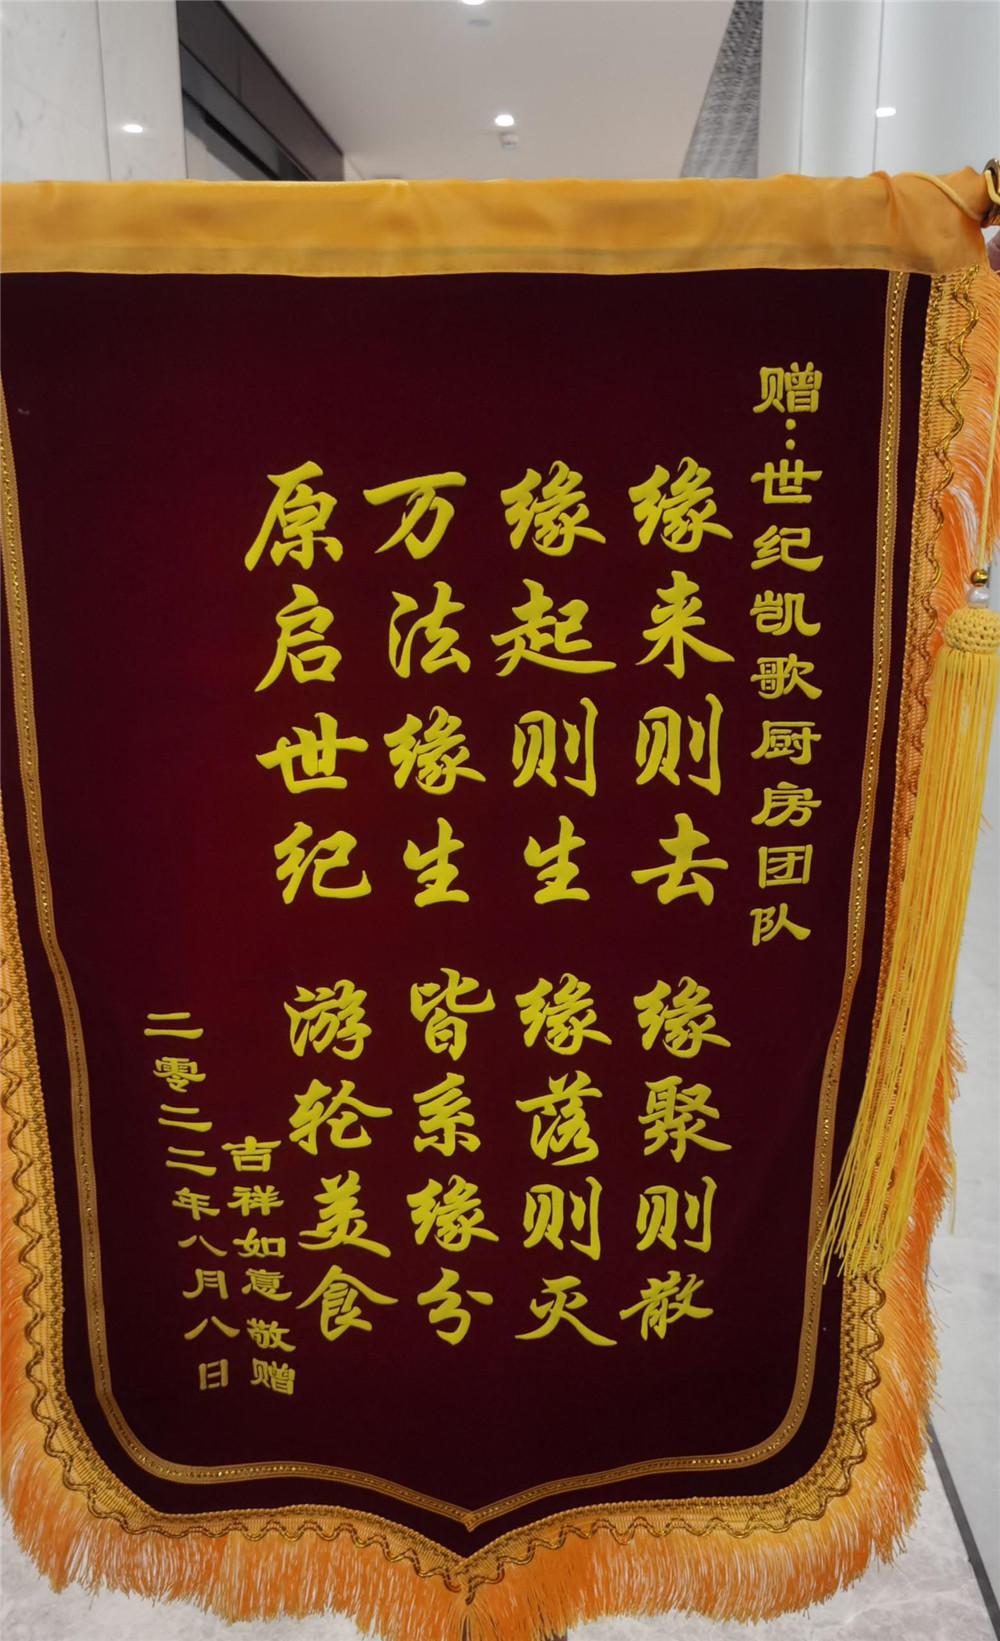 赠：世纪凯歌厨房团队
缘来则去 缘聚则散
缘起则生 缘落则灭
万法缘生 皆系缘分
原启世纪 游轮美食
吉祥如意 敬赠
二零二二年八月八日